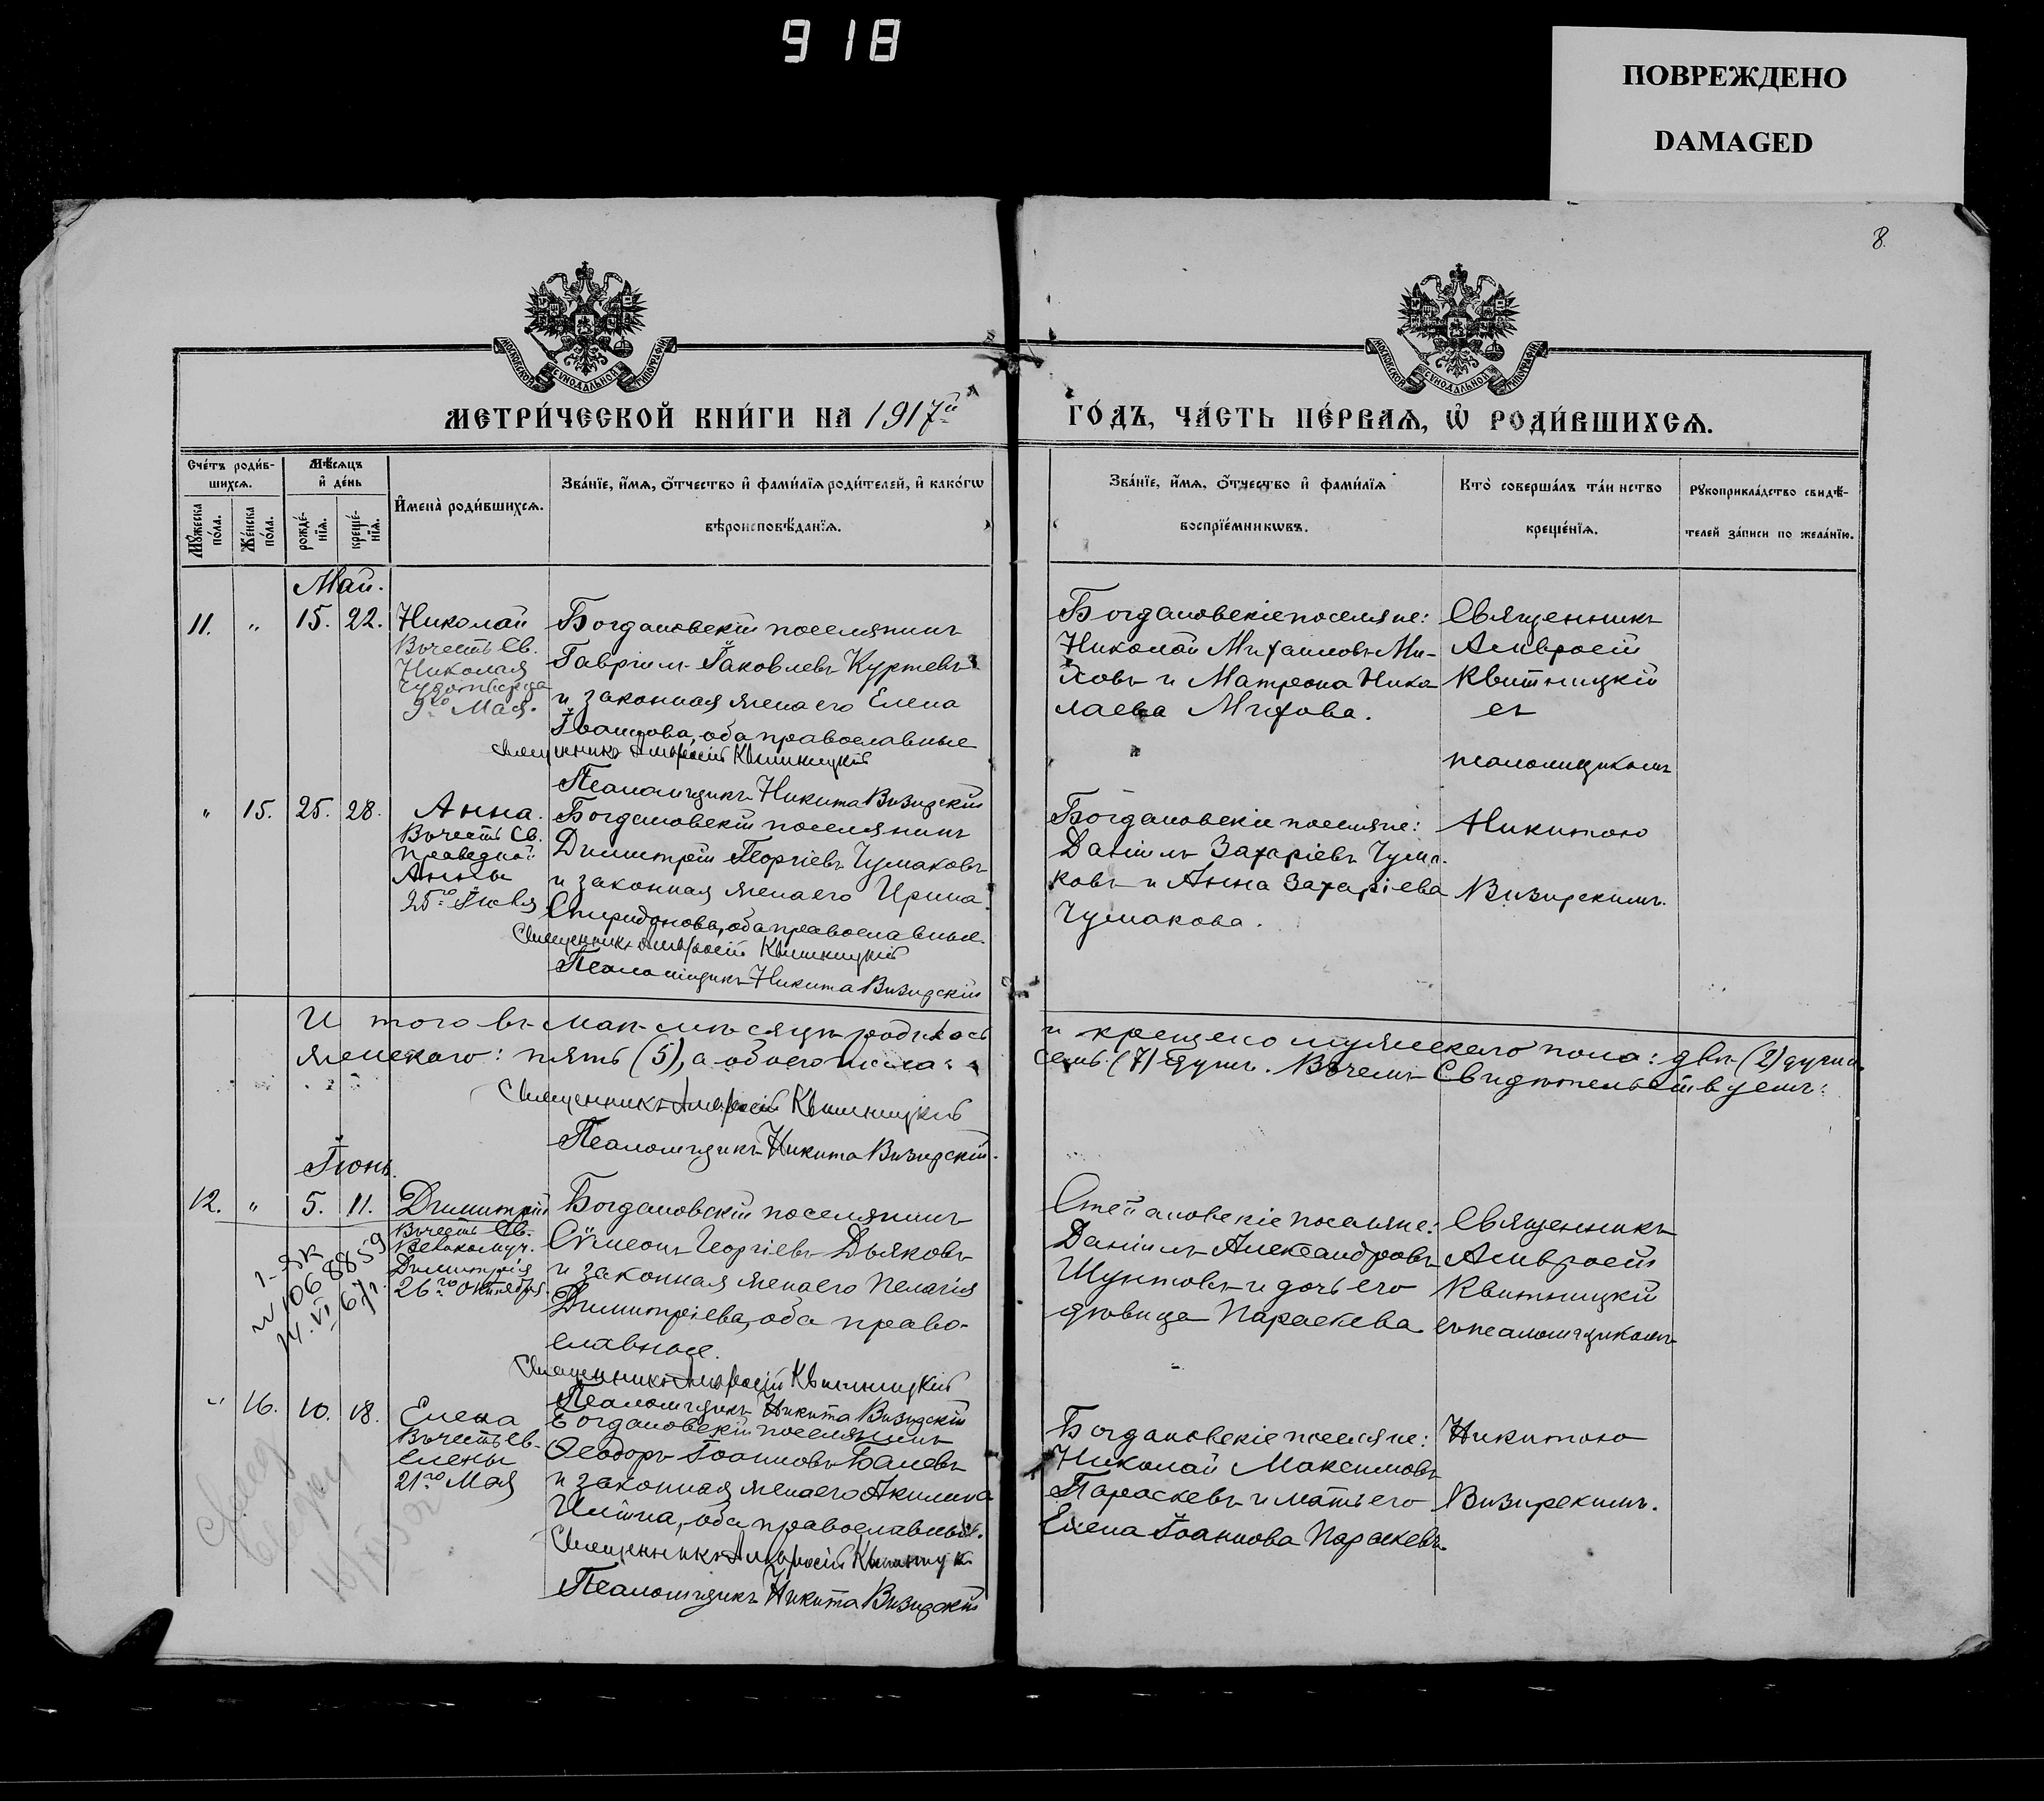 918
ПОВРЕЖДЕНО
DAMAGED
8.
МОСКОВСКОЙ СѴНОДАЛЬНОЙ ТИПОГРАФІИ
МОСКОВСКОЙ СѴНОДАЛЬНОЙ ТИПОГРАФІИ
МЕТРИ́ЧЕСКОЙ КНИ́ГИ НА 1917й
ГО́ДЪ, ЧА́СТЬ ПЕ́РВАѦ, Ѡ҆ РОДИ́ВШИХСѦ.
Сче́тъ роди́в-
шихсѧ.
Мѣ́сѧцъ
и҆ де́нь
Мꙋ́жеска по́ла.
Же́нска по́ла.
рожде́-
нїѧ.
креще́-
нїѧ.
И҆мена̀ роди́вшихсѧ.
Зва́нїе, и҆́мѧ, ѻ҆́тчество и҆ фами́лїѧ роди́телей, и҆ како́гѡ
вѣроисповѣ́данїѧ.
Зва́нїе, и҆́мѧ, ѻ҆́тчество и҆ фами́лїѧ
воспрїе́мникѡвъ.
Кто̀ соверша́лъ та́инство
креще́нїѧ.
Рꙋкоприкла́дство свидѣ́-
телей за́писи по жела́нїю.
Май.
11. " 15. 22. Николай
Въ честь Св.
Николая
Чудотворца
9го Мая.
Богдановскій поселянинъ
Гавріилъ Іаковлевъ Куртевъ
и законная жена его Елена
Іоаннова, оба православные
Священникъ Амвросій Квитницкій
Псаломщикъ Никита Визирскій
Богдановскіе поселяне:
Николай Михаиловъ Ми-
ховъ и Матрона Нико
лаева Михова.
Священникъ
Амвросій
Квитницкій
съ
псаломщикомъ
" 15. 25. 28. Анна.
Въ честь Св.
Праведной
Анны
25го Іюля
Богдановскій поселянинъ
Димитрій Георгіевъ Чумаковъ
и законная жена его Ирина
Спиридонова, оба православные.
Священникъ Амвросій Квитницкій
Псаломщикъ Никита Визирскій
Богдановскіе поселяне:
Даніилъ Захаріевъ Чума-
ковъ и Анна Захаріева
Чумакова.
Никитою
Визирскимъ.
И того въ маѣ мѣсяцѣ родилось
и крещено мужескаго пола: двѣ (2) души
женскаго: пять (5), а обоего пола:
семь (7) душъ. Въ чемъ Свидѣтельствуемъ:
Священникъ Амвросій Квитницкій
Псаломщикъ Никита Визирскій.
Іюнь.
12. " 5. 11. Димитрій
Въ честь Св.
Великомуч.
Димитрія
26го октября.
1-ЯК
N 1068859
14.VI 67г.
Богдановскій поселянинъ
Сѵмеонъ Георгіевъ Дьяковъ
и законная жена его Пелагія
Димитріева, оба право-
славные.
Священникъ Амвросій Квитницкій
Псаломщикъ Никита Визирскій
Степановскіе поселяне:
Даніилъ Александровъ
Шунтовъ и дочь его
дѣвица Параскева
Священникъ
Амвросій
Квитницкій
съ псаломщикомъ
" 16. 10. 18. Елена
Въ честь Св.
Елены
21го Мая
Богдановскій поселянинъ
Ѳеодоръ Іоанновъ Балевъ
и законная жена его Акилина
Ильина, оба православные.
Священникъ Амвросій Квитницк
Псаломщикъ Никита Визирскій
Богдановскіе поселяне:
Николай Максимовъ
Параскевъ и мать его
Елена Іоаннова Параскевъ.
Никитою
Визирскимъ.